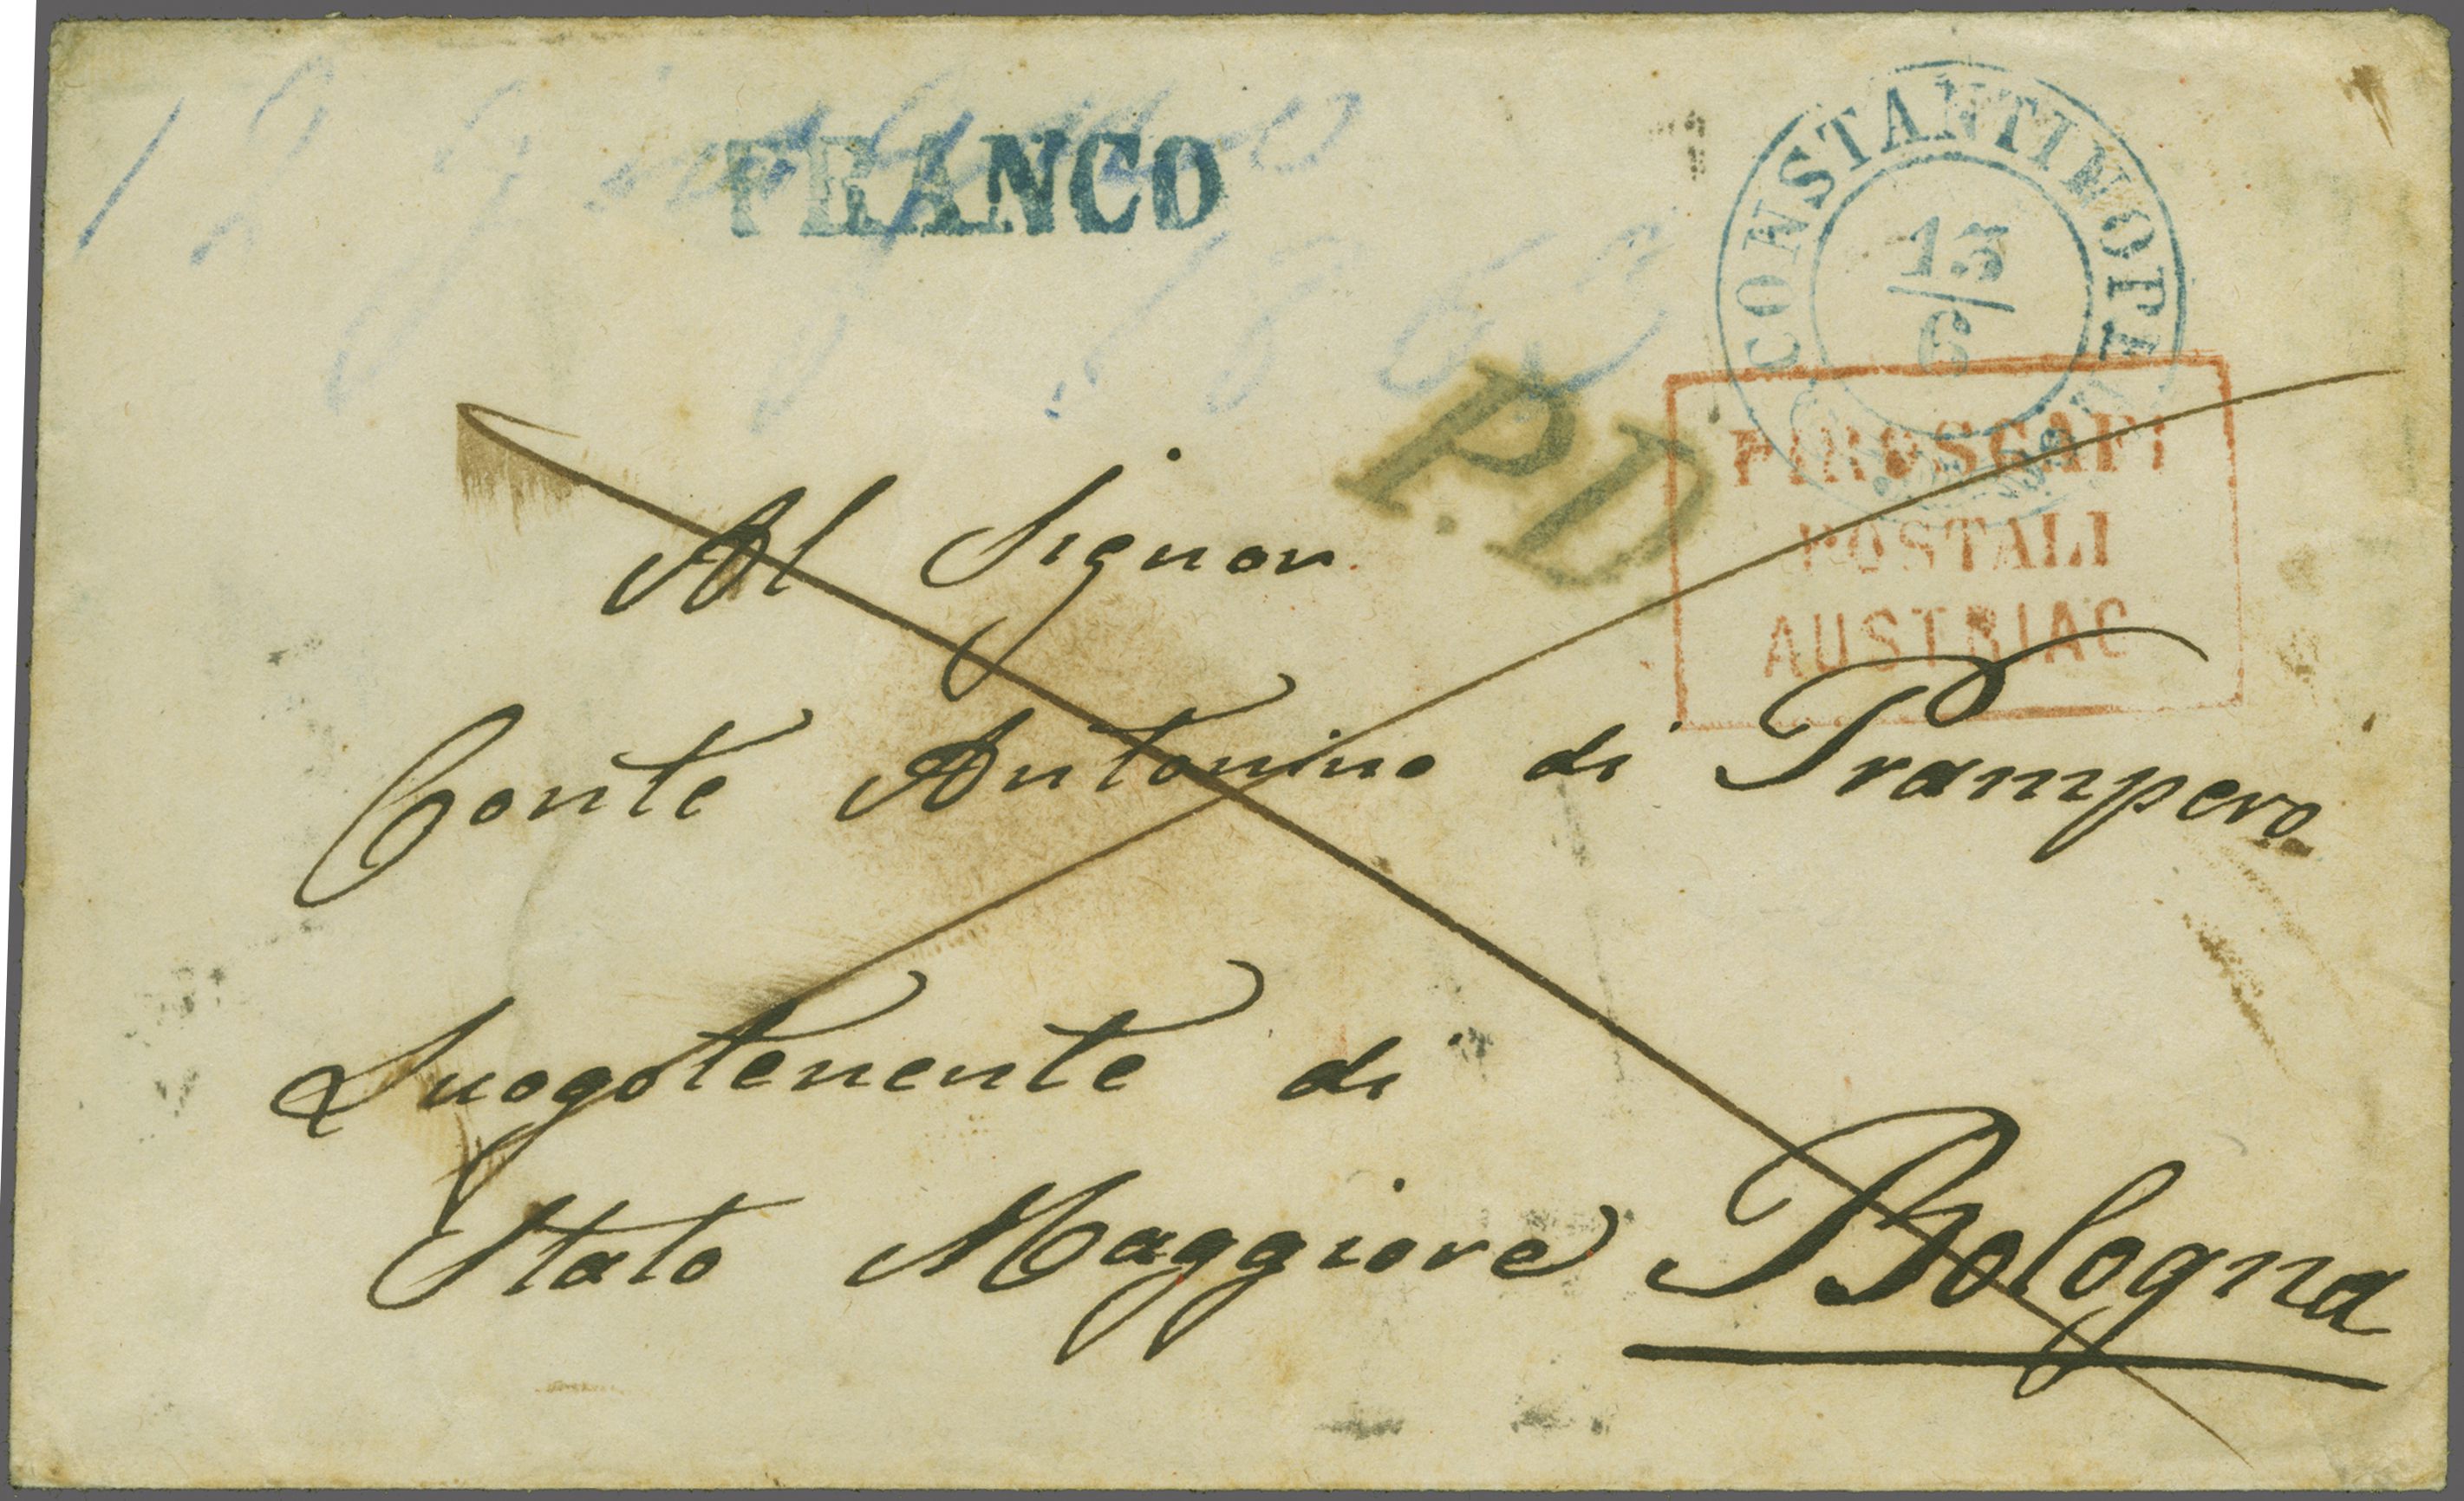 12 giugno 1863
FRANCO
CONSTANTINOPEL
13
6
P.D.
PIROSCAFI
POSTALI
AUSTRIAC
Al Signor
Conte Antonino di Prampero
Luogotenente di
Stato Maggiore Bologna